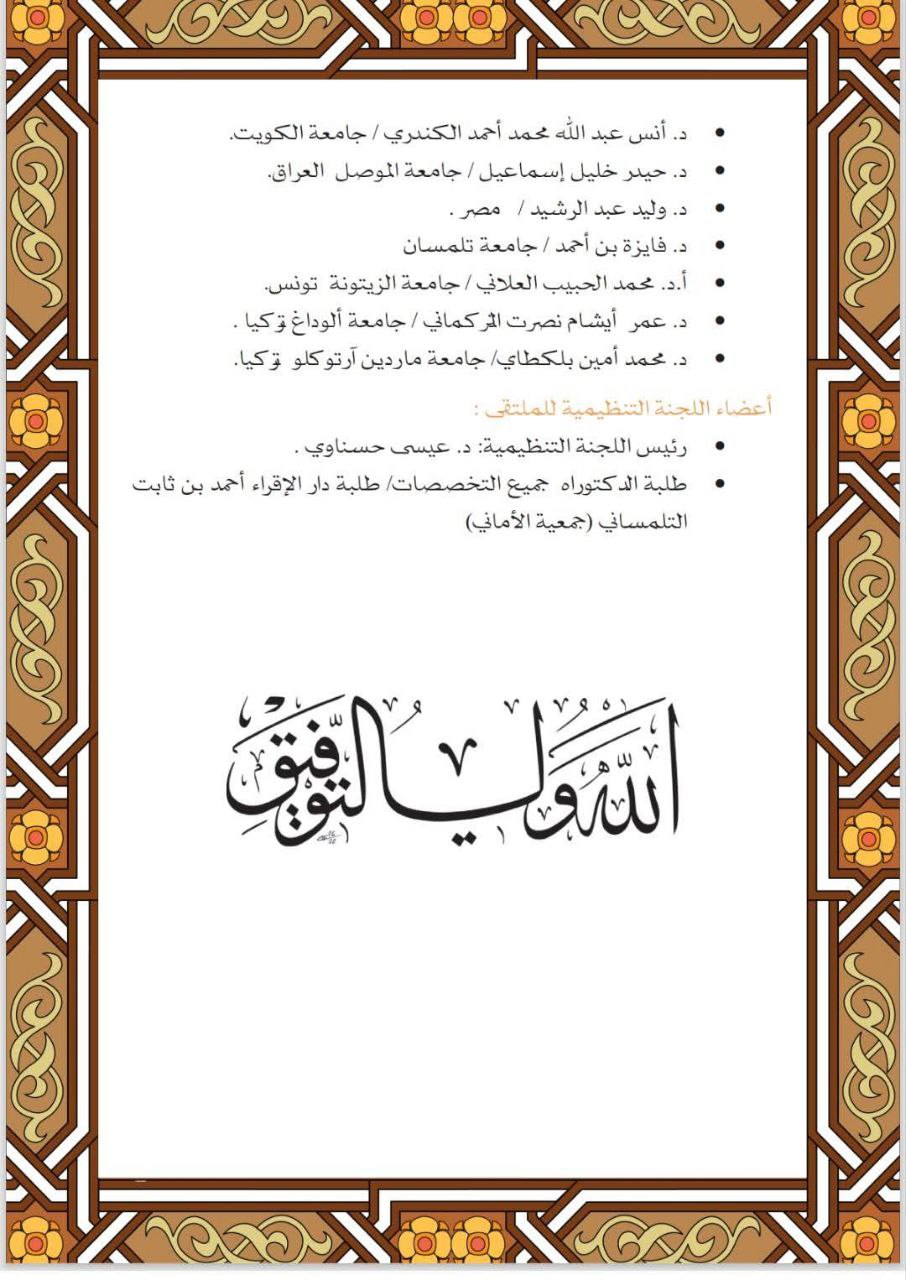 • د. أنس عبد الله محمد أحمد الكندري / جامعة الكويت.
• د. حيدر خليل إسماعيل / جامعة الموصل العراق.
• د. وليد عبد الرشيد / مصر .
• د. فايزة بن أحمد / جامعة تلمسان
• أ.د. محمد الحبيب العلاني / جامعة الزيتونة تونس.
• د. عمر أيشام نصرت التركماني / جامعة ألوداغ تركيا .
• د. محمد أمين بلكطاي/ جامعة ماردين آرتوكلو تركيا.
أعضاء اللجنة التنظيمية للملتقى :
• رئيس اللجنة التنظيمية: د. عيسى حسناوي .
• طلبة الدكتوراه جميع التخصصات/ طلبة دار الإقراء أحمد بن ثابت
التلمساني (جمعية الأماني)
الله ولي التوفيق